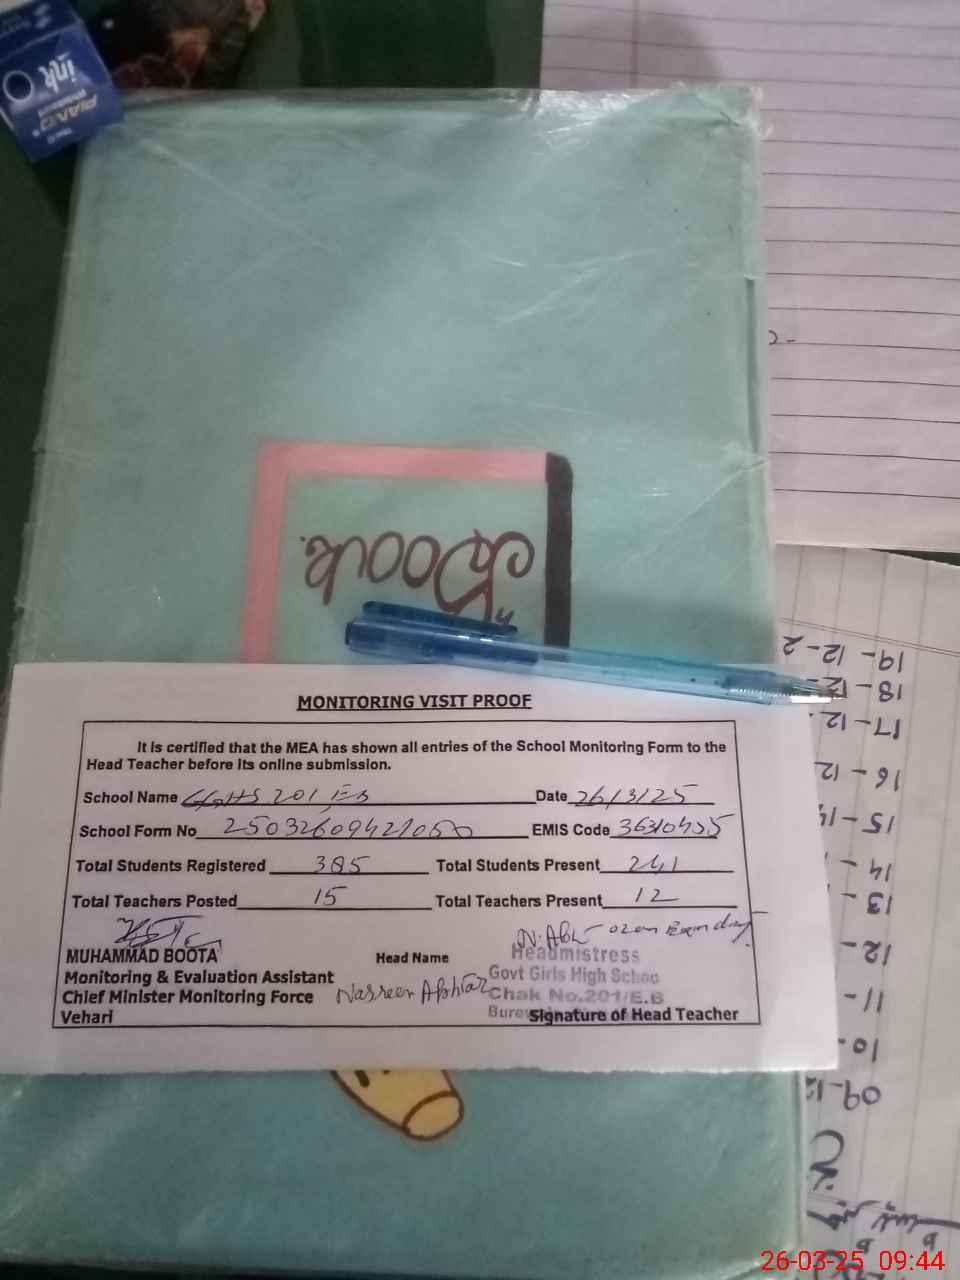 PIANO
ink
Book.
MONITORING VISIT PROOF
It is certified that the MEA has shown all entries of the School Monitoring Form to the
Head Teacher before its online submission.
School Name GGHS 201 EB Date 26/3/25
School Form No EMIS Code 36310455
Total Students Registered 385 Total Students Present 241
Total Teachers Posted 15 Total Teachers Present 12
MUHAMMAD BOOTA Head Name Headmistress
Monitoring & Evaluation Assistant Govt Girls High School
Chief Minister Monitoring Force Nasreen Akhtar Chak No.201/E.B
Vehari Signature of Head Teacher
19-12-2
18-12-
17-12-
16-12
15-
14-
13-
12-
11-
10-
09-12
26-03-25 09:44